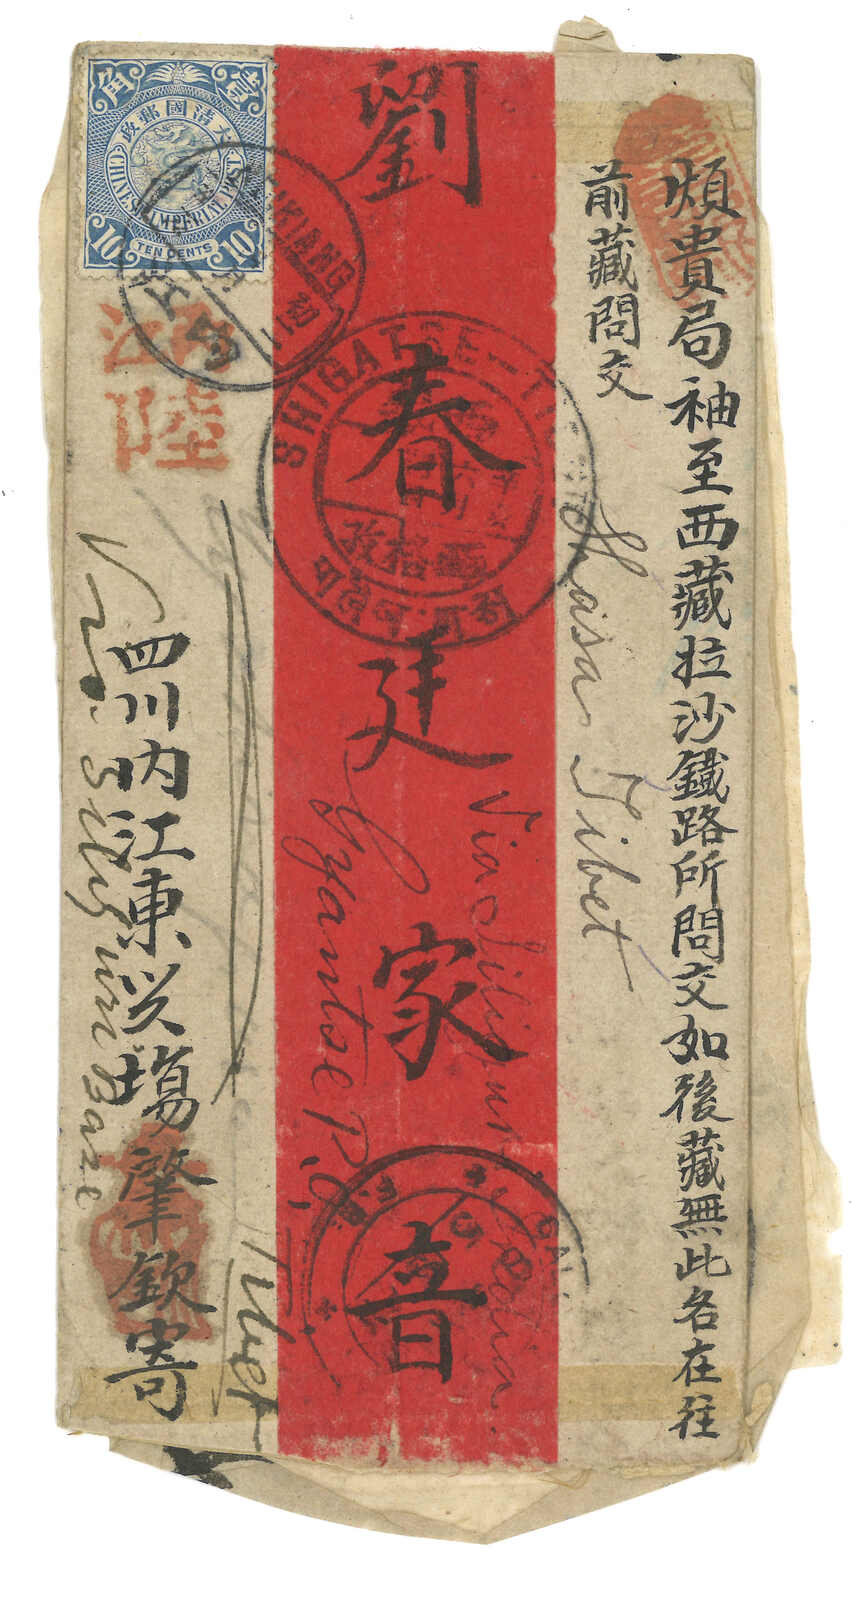 煩貴局袖至西藏拉沙鐵路所問交如後藏無此名在往
前藏問交
劉春廷家音
四川內江東興場肇欽寄
壹角
大清國郵政
CHINESE IMPERIAL POST
10 TEN CENTS 10
KIANG
SHIGATSE
Lhasa Tibet
Via Siliguri
Gyantse P.O.
Tibet